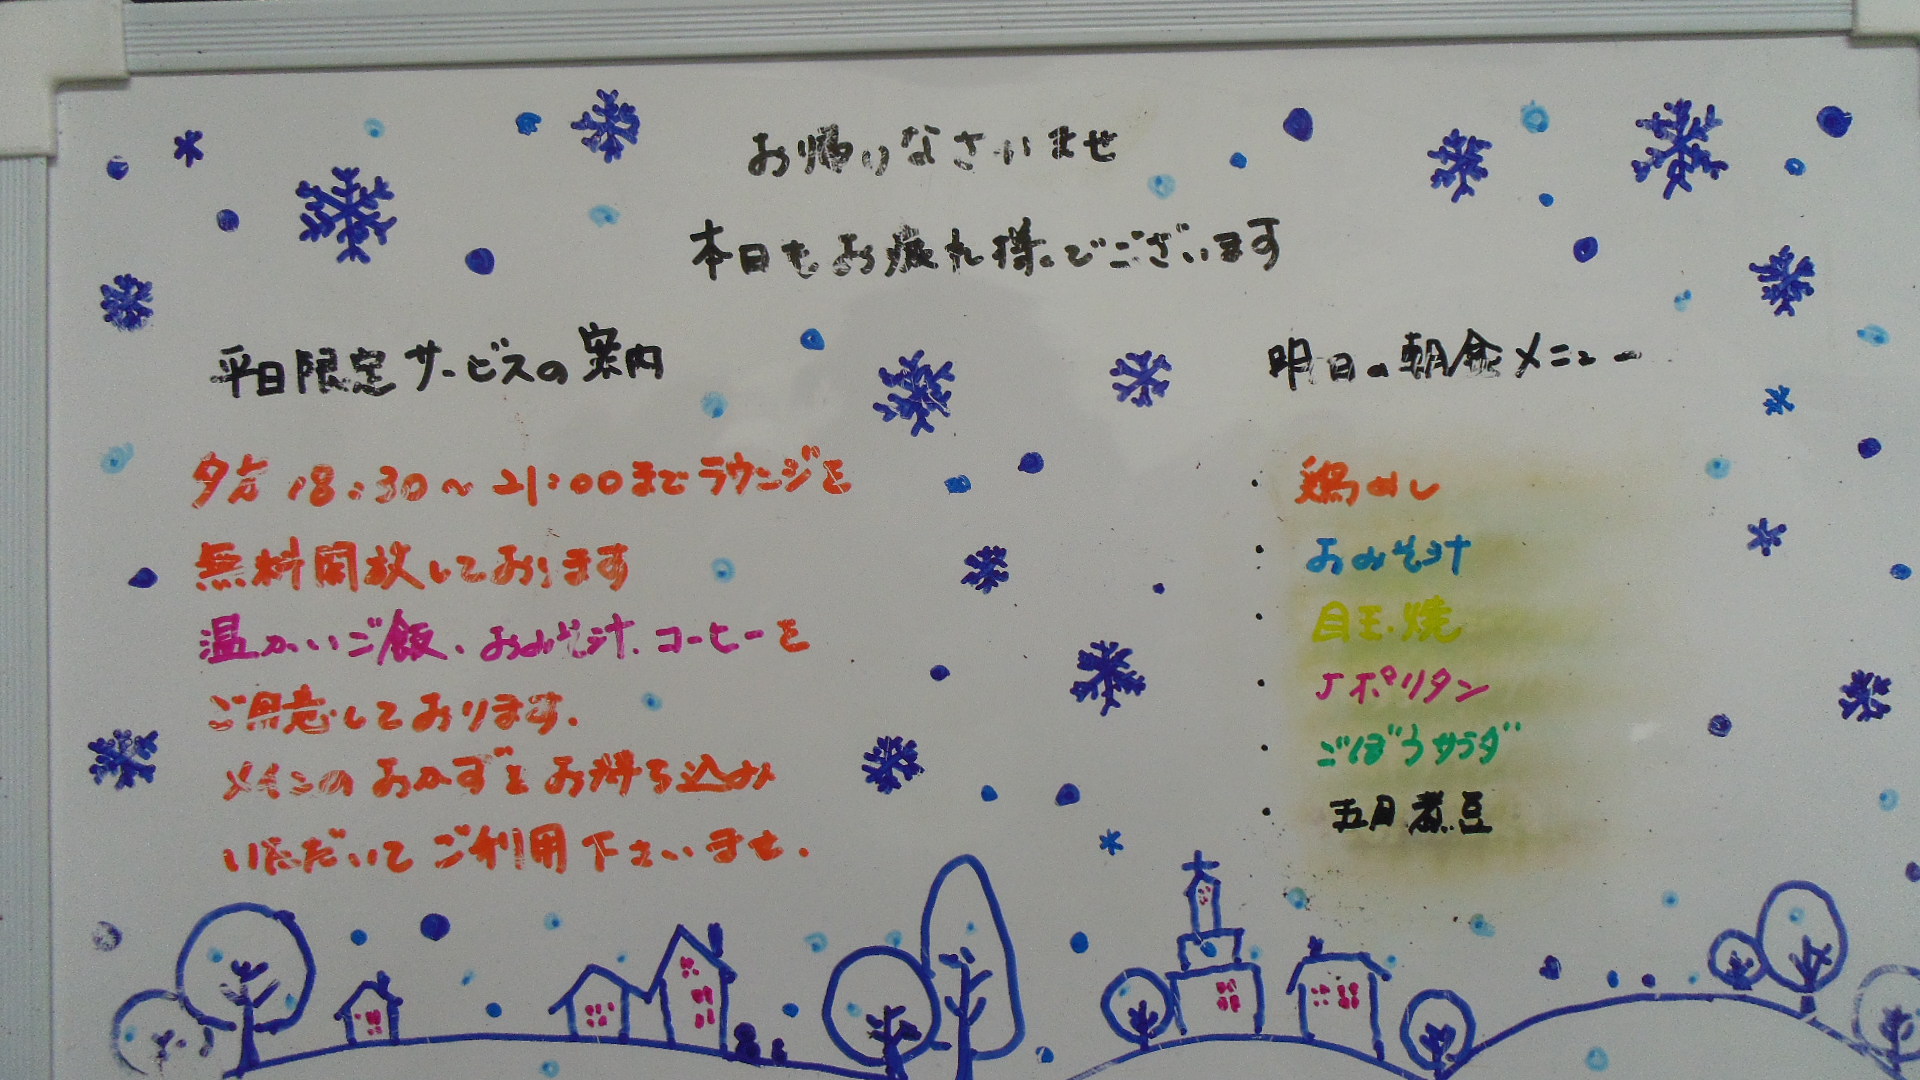 お帰りなさいませ
本日もお疲れ様でございます
平日限定サービスの案内
夕方18:30~21:00までラウンジを
無料開放しております
温かいご飯、おみそ汁、コーヒーを
ご用意しております。
メインのおかずをお持ち込み
いただいてご利用下さいませ.
明日の朝食メニュー
・鶏めし
・おみそ汁
・目玉焼
・ナポリタン
・ごぼうサラダ
・五目煮豆